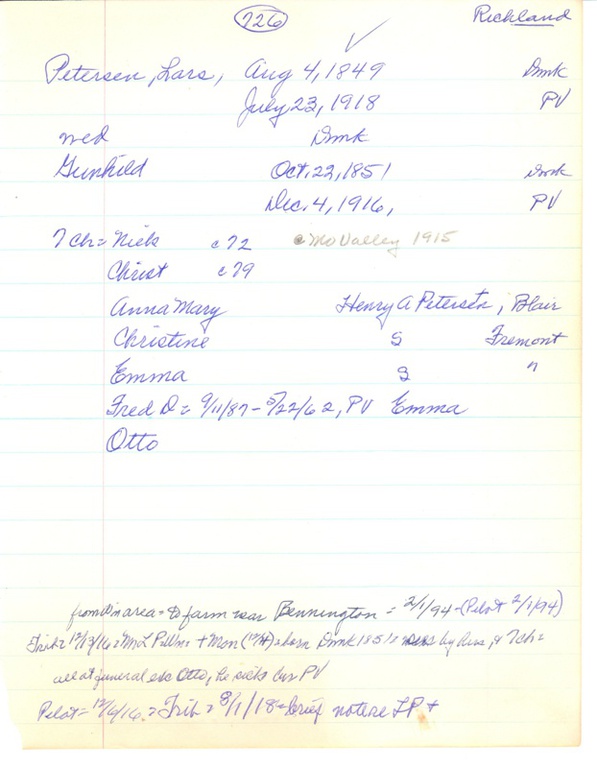 726
Richland
Petersen, Lars, Aug 4, 1849 Dmk
July 23, 1918 PV
wed Dmk
Gunhild Oct. 22, 1851 Dmk
Dec. 4, 1916, PV
7 Ch = Nick c72 c Mo Valley 1915
Christ c79
Anna Mary Henry A Petersen, Blair
Christine S Fremont
Emma S "
Fred D = 9/11/87 - 5/22/62, PV Emma
Otto
area = to farm near Bennington = 2/1/94 - (Pilot 2/1/94)
Trib = 12/13/16 = Mrs L P + Mon born Dmk 1851 = by hus, & 7 ch =
all at funeral exc Otto, he sick bur PV
Pilot = 12/6/16 = Trib = 8/1/18 = brief notice LP +